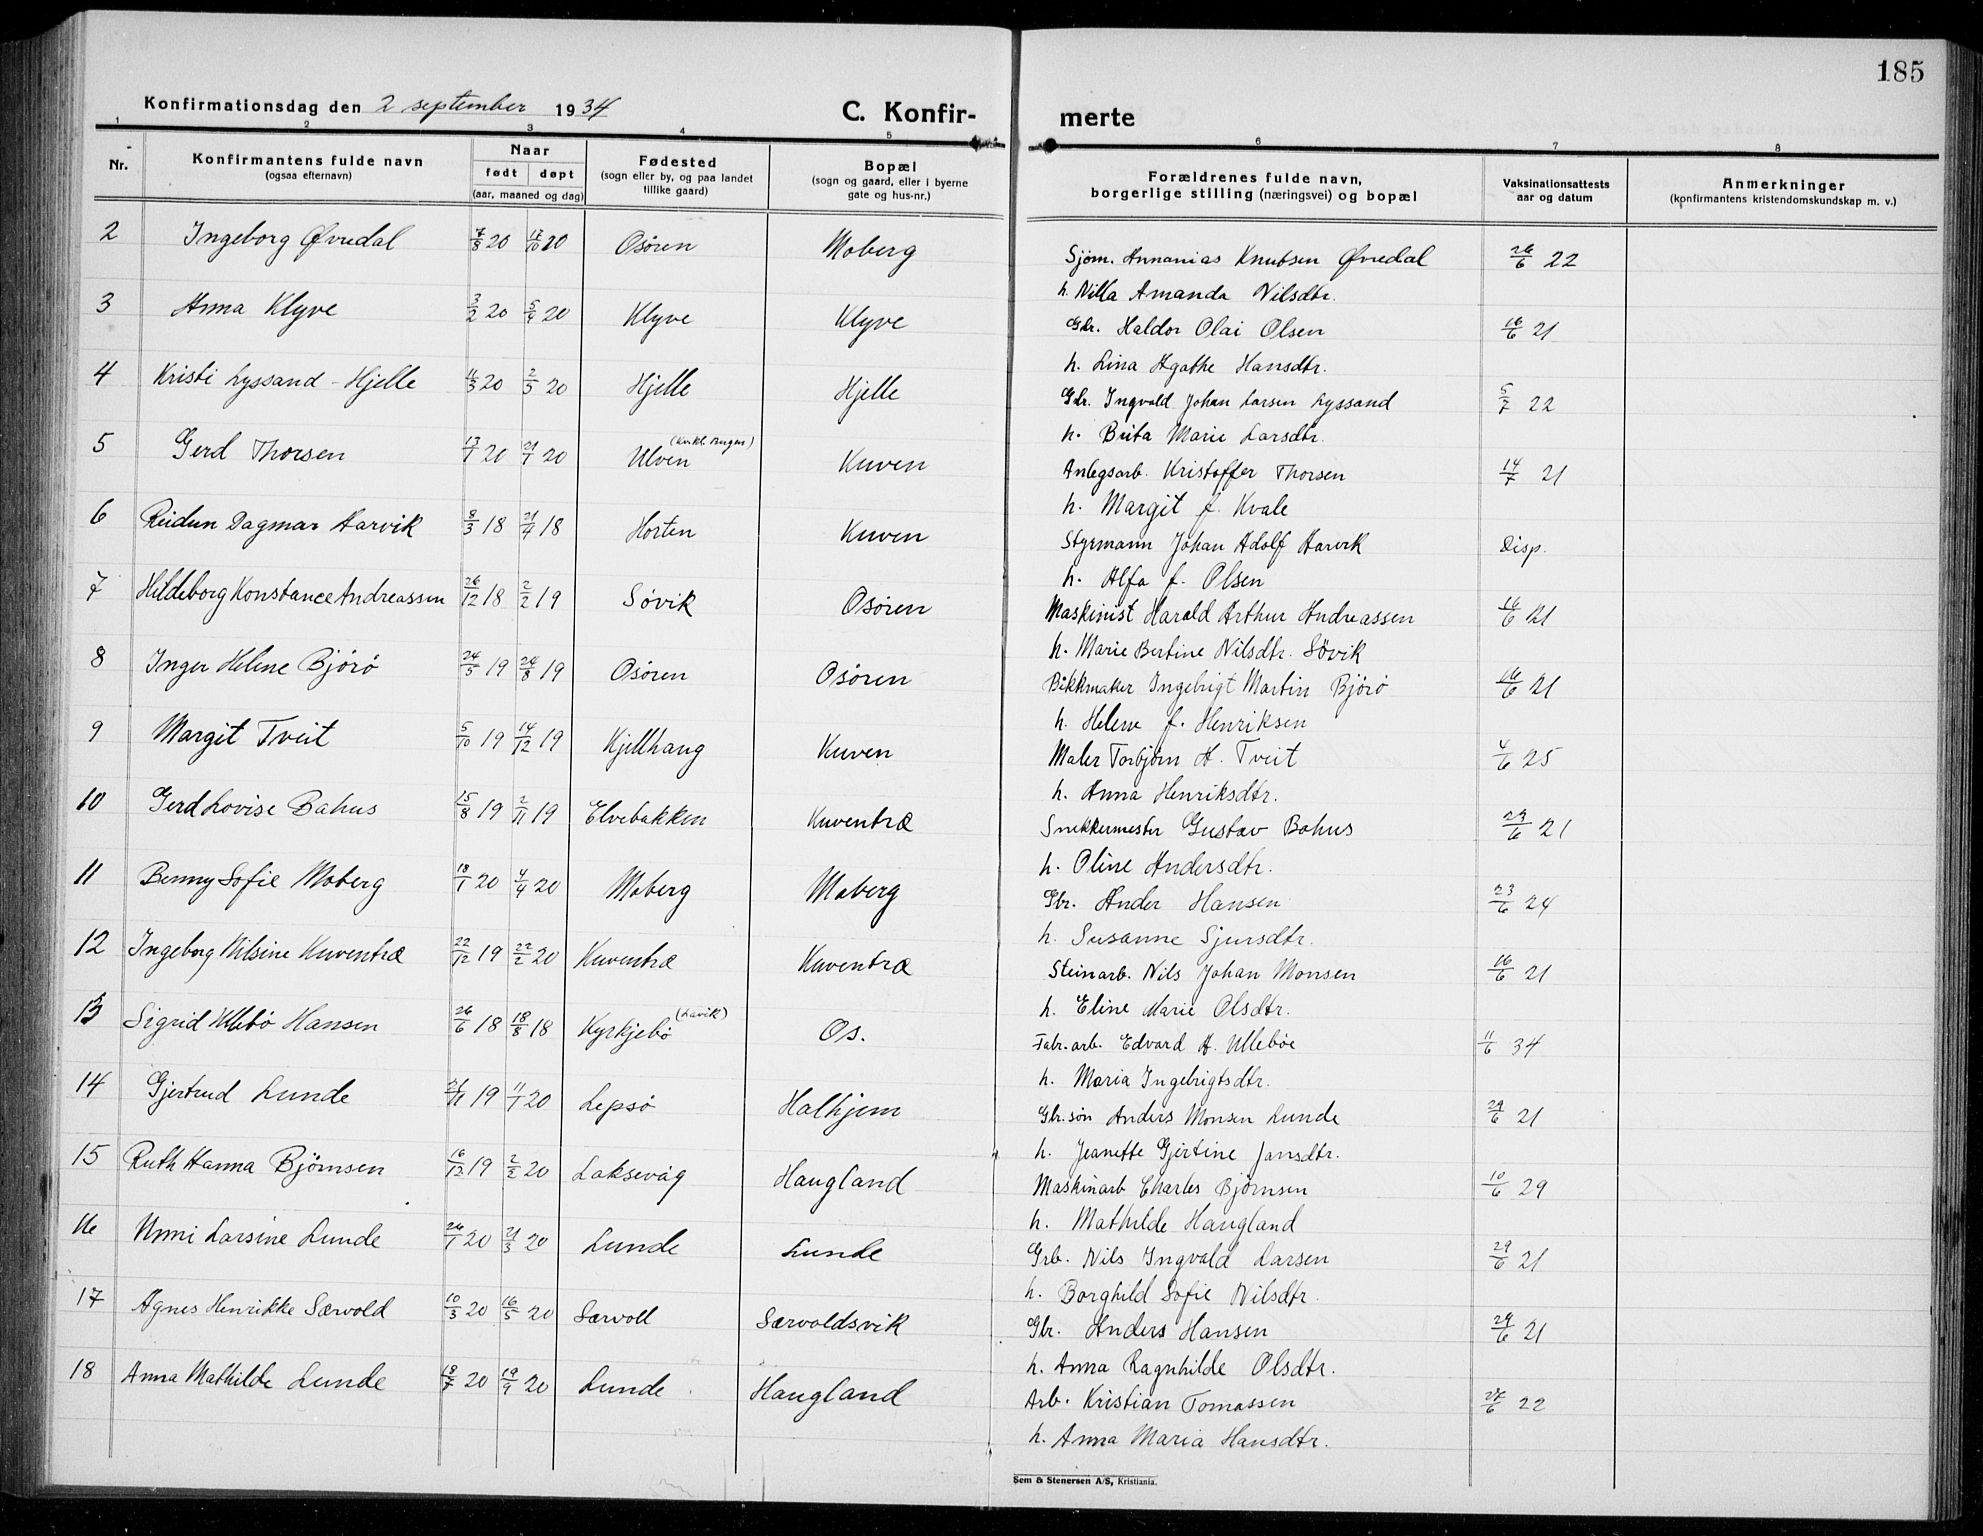 185
Konfirmationsdag den 2 september 1934
C. Konfir-
merte
1 2 3 4 5 6 7 8
Nr.
Konfirmantens fulde navn
(ogsaa efternavn)
Naar
født døpt
(aar, maaned og dag)
Fødested
(sogn eller by, og paa landet
tillike gaard)
Bopæl
(sogn og gaard, eller i byerne
gate og hus-nr.)
Forældrenes fulde navn,
borgerlige stilling (næringsvei) og bopæl
Vaksinationsattests
aar og datum
Anmerkninger
(konfirmantens kristendomskundskap m. v.)
2 Ingeborg Øvredal 7/8 20 17/10 20 Osøren Moberg Sjøm. Annanias Knutsen Øvredal 26/6 22
h. Nilla Amanda Nilsdtr.
3 Anna Klyve 3/2 20 5/4 20 Klyve Klyve Gbr. Haldor Olai Olsen 16/6 21
h. Lina Agathe Hansdtr.
4 Kristi Lyssand-Hjelle 11/3 20 2/5 20 Hjelle Hjelle Gbr. Ingvald Johan Larsen Lyssand 5/7 22
h. Brita Marie Larsdtr.
5 Gerd Thorsen 13/1 20 21/1 20 Ulven Kuven Anlegsarb. Kristoffer Thorsen 14/7 21
h. Margit f. Kvale
6 Reidun Dagmar Aarvik 8/3 18 21/4 18 Horten Kuven Styrmann Johan Adolf Aarvik Disp.
h. Alfa f. Olsen
7 Hildeborg Konstance Andreassen 26/12 18 2/2 19 Søvik Osøren Maskinist Harald Arthur Andreassen 16/6 21
h. Marie Bertine Nilsdtr. Søvik
8 Inger Helene Bjørø 24/5 19 24/8 19 Osøren Osøren Blikkmaker Ingebrigt Martin Bjørø 16/6 21
h. Helene f. Henriksen
9 Margit Tveit 5/10 19 14/12 19 Kjellhaug Kuven Maler Torbjørn H. Tveit 4/6 25
h. Anna Henriksdtr.
10 Gerd Lovise Bahus 15/8 19 2/11 19 Elvebakken Kuventræ Snekkermester Gustav Bahus 29/6 21
h. Oline Andersdtr.
11 Benny Sofie Moberg 18/1 20 4/4 20 Moberg Moberg Gbr. Ander Hansen 23/6 24
h. Susanne Sjursdtr.
12 Ingeborg Nilsine Kuventræ 22/12 19 22/2 20 Kuventræ Kuventræ Steinarb. Nils Johan Monsen 16/6 21
h. Eline Marie Olsdtr.
13 Sigrid Ullebø Hansen 26/6 18 18/8 18 Kyrkjebø (Lavik) Os. Fabr.arb. Edvard H. Ullebøe 11/6 34
h. Maria Ingebrigtsdtr.
14 Gjertrud Lunde 21/11 19 11/1 20 Lepsø Halhjem Gbr.søn Anders Monsen Lunde 29/6 21
h. Jeanette Gjertine Jansdtr.
15 Ruth Hanna Bjørnsen 16/12 19 2/3 20 Laksevåg Haugland Maskinarb Charles Bjørnsen 10/6 29
h. Mathilde Haugland
16 Unni Larsine Lunde 26/1 20 21/3 20 Lunde Lunde Grb. Nils Ingvald Larsen 29/6 21
h. Borghild Sofie Nilsdtr.
17 Agnes Henrikke Særvold 10/3 20 16/5 20 Særvoll Særvoldsvik Gbr. Anders Hansen 29/6 21
h. Anna Ragnhilde Olsdtr.
18 Anna Mathilde Lunde 18/7 20 19/9 20 Lunde Haugland Arb. Kristian Tomassen 27/6 22
h. Anna Maria Hansdtr.
Sem & Stenersen A/S, Kristiania.